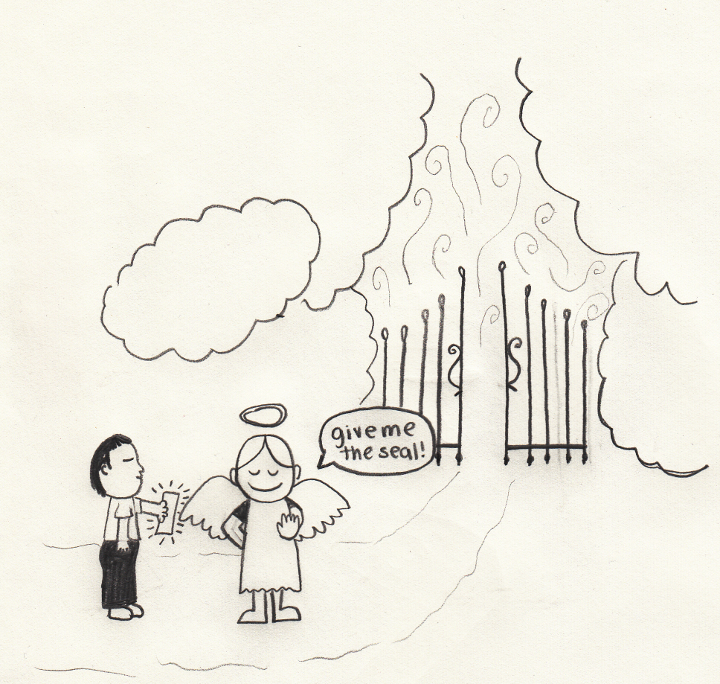 give me
the seal!